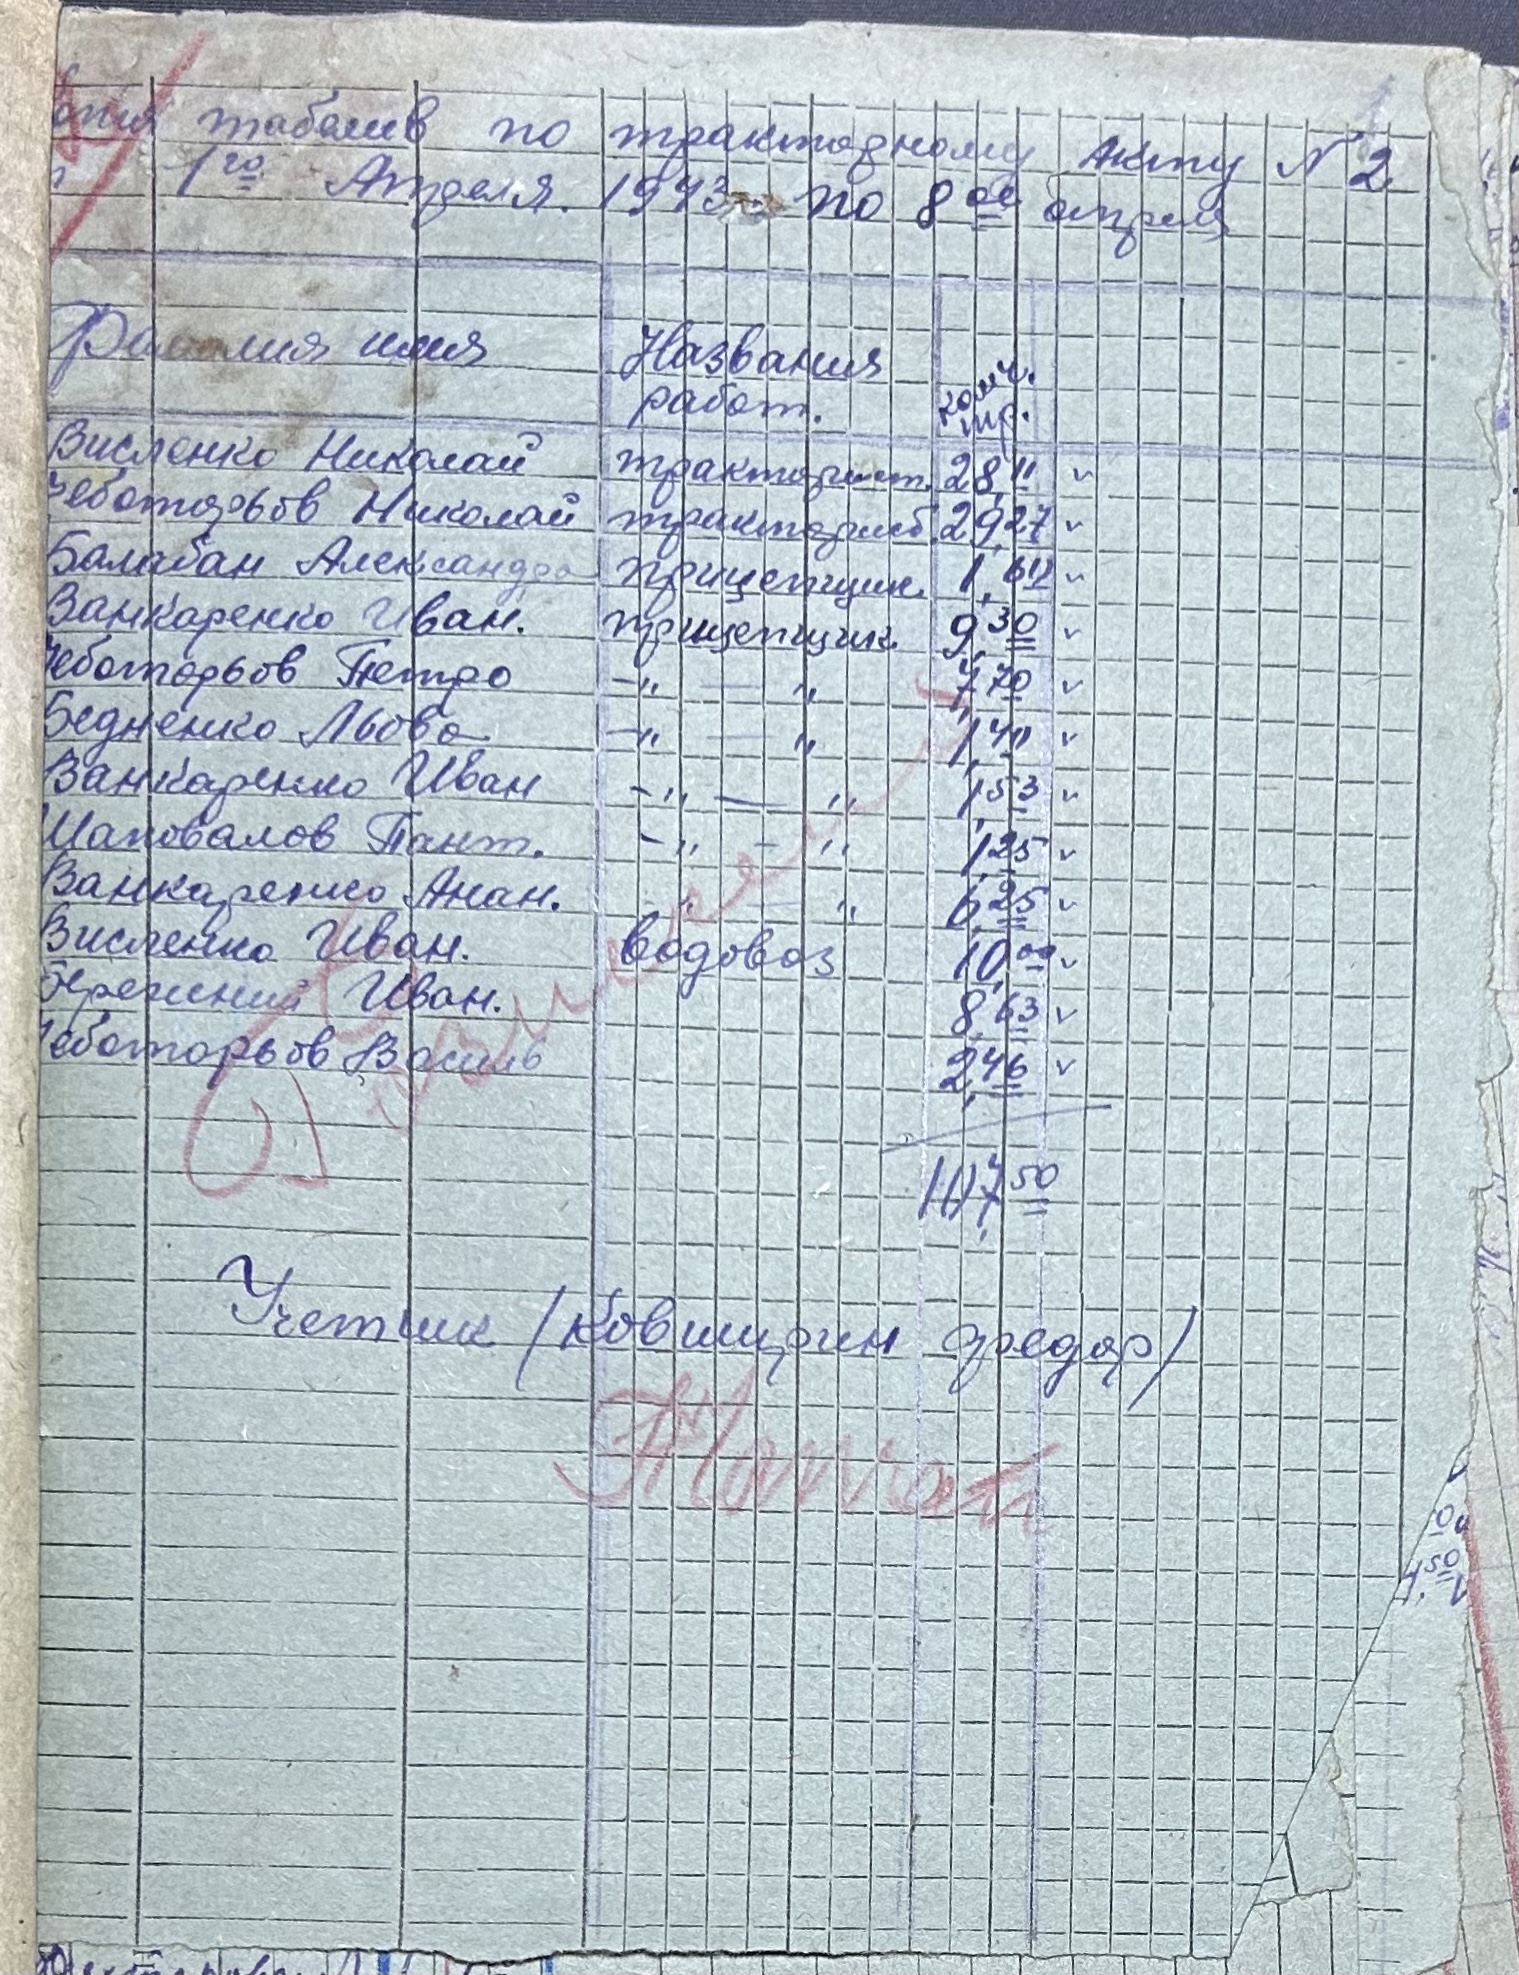 опия табелив по тракторному акту № 2
1го Апреля. 1943 по 8ое апреля
Фамилия имя Названия работ. колич. тр.
Висленко Николай тракторист. 28,11 ✓
Чеботарьов Николай тракторист 29,27 ✓
Балабан Александра прицепщик. 1,60 ✓
Ванкаренко Иван. прицепщик. 9,30 ✓
Чеботарьов Петро -„ — „ 7,70 ✓
Бедненко Льова -„ — „ 1,40 ✓
Ванкаренко Иван -„ — „ 1,53 ✓
Шаповалов Пант. -„ - „ 1,25 ✓
Ванкаренко Анан. „ — „ 6,25 ✓
Висленко Иван. водовоз 10,00 ✓
Бережний Иван. 8,63 ✓
Чеботарьов Василь 2,46 ✓
107,50
Учетчик (Ковширин Федор)